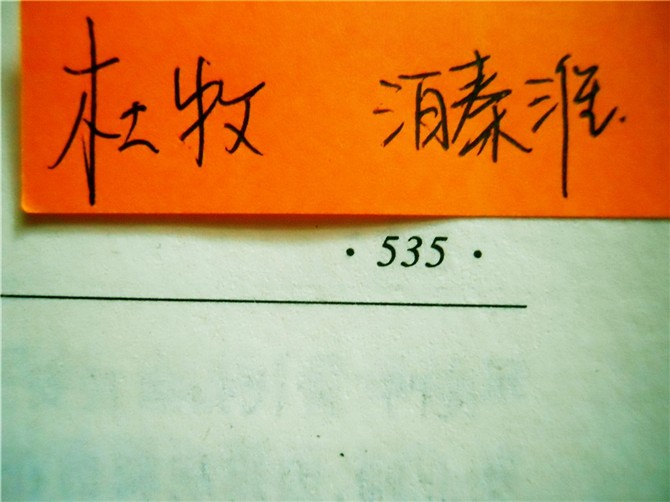 杜牧 泊秦淮.
· 535 ·